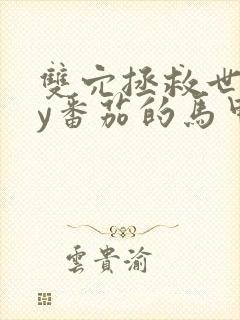 雙穴拯救世
y番茄的馬甲
雲貴渝